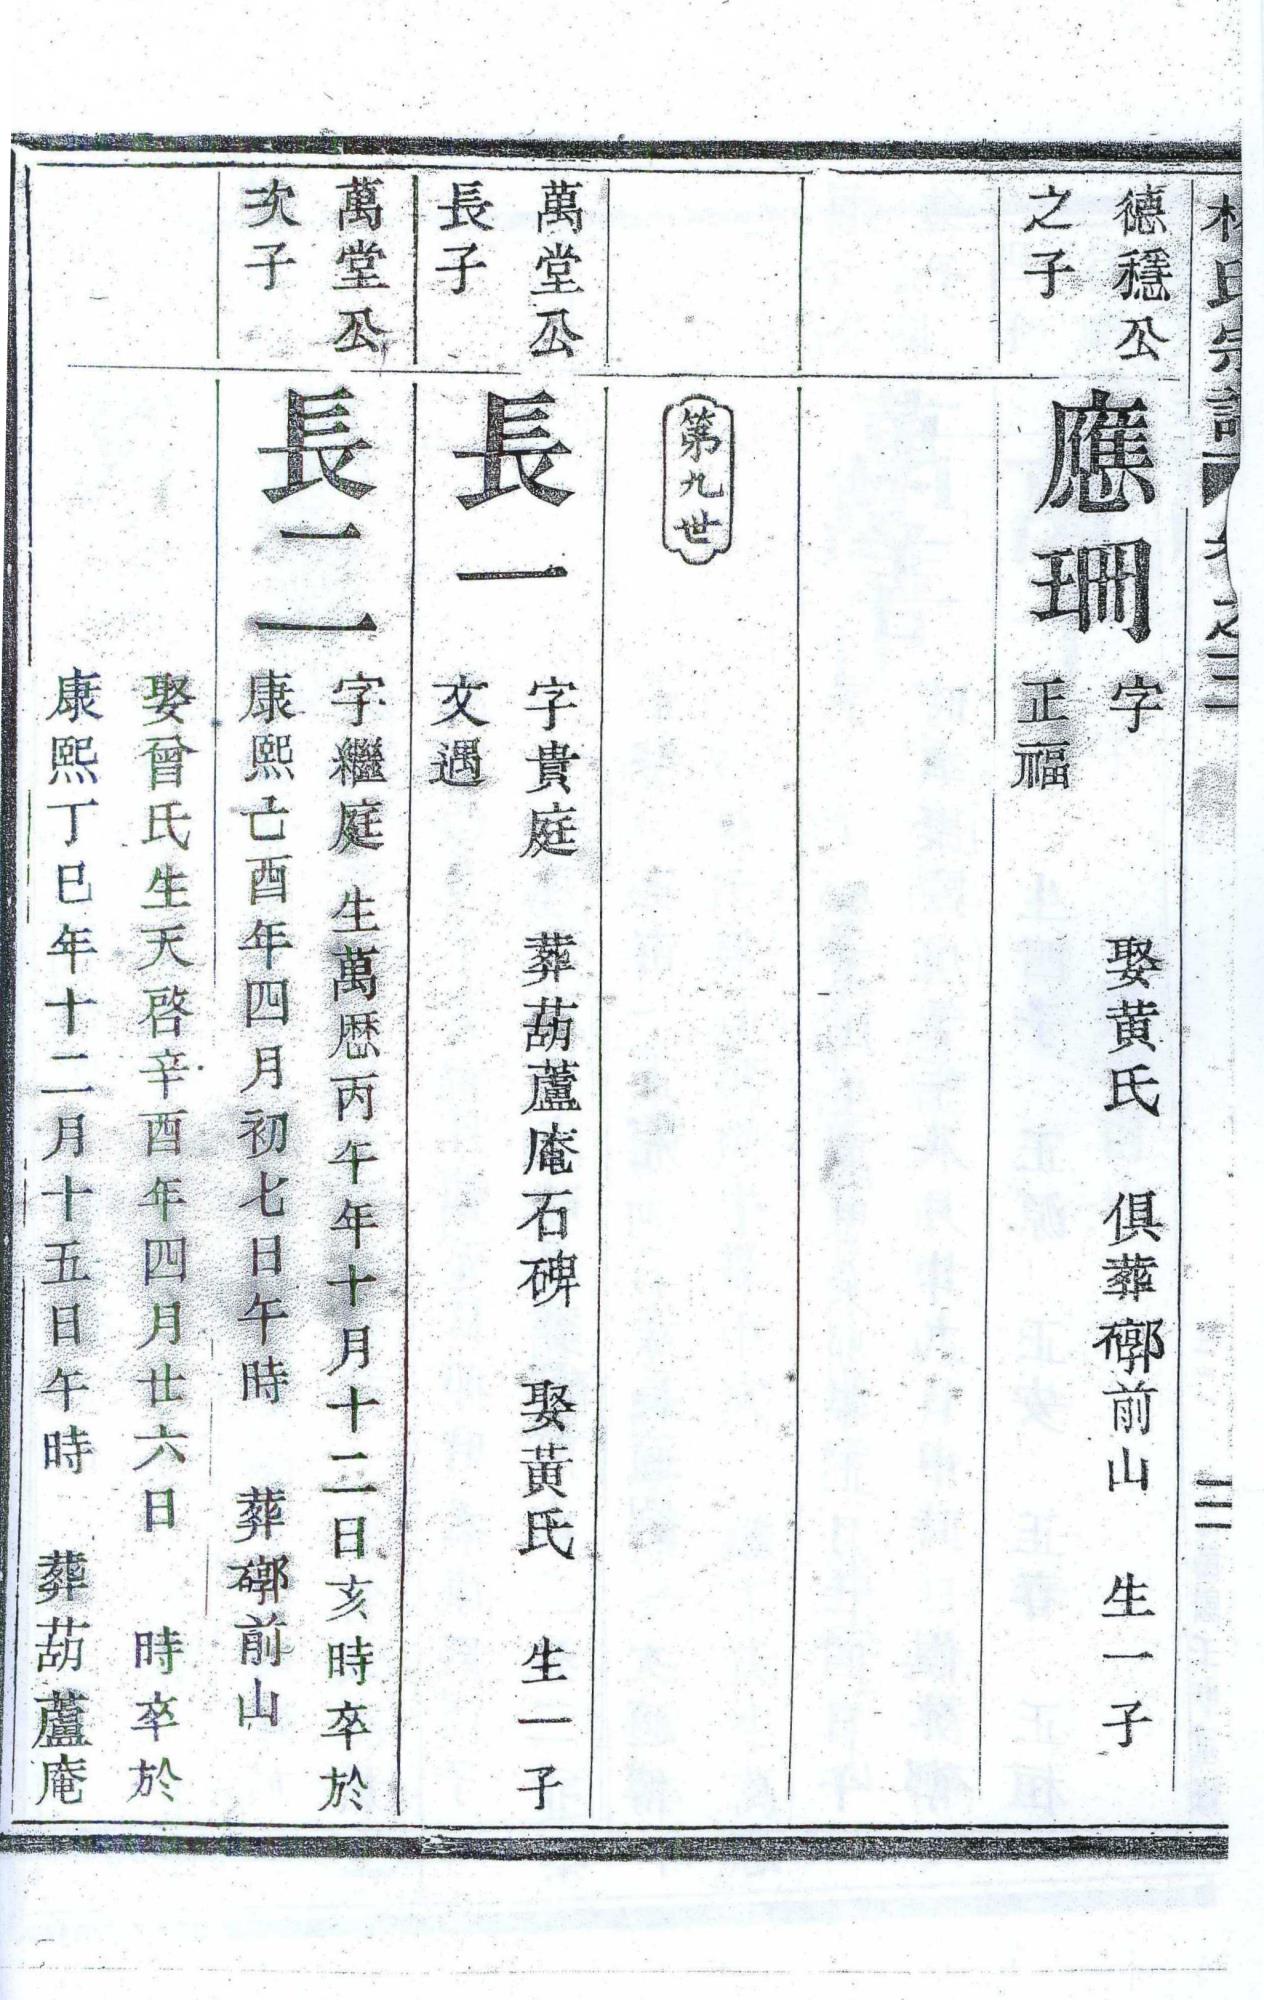 氏宗譜
之二
二
德穩公
之子
應珊
字
娶黄氏
俱葬𨞬前山
生一子
正福
第九世
萬堂公
長子
長一
字貴庭
葬葫蘆庵石碑
娶黃氏
生一子
文遇
萬堂公
次子
長二
字繼庭生萬歷丙午年十月十二日亥時卒於
康熙亡酉年四月初七日午時
葬𨞬前山
娶曾氏生天啓辛酉年四月廿六日
時卒於
康熙丁巳年十二月十五日午時
葬葫蘆庵